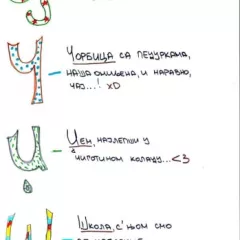 Ч – ЧОРБИЦА СА ПЕЧУРКАМА,
НАША ОМИЉЕНА, И НАРАВНО,
ЧАЈ...! xD
Џ – ЏЕМ, НАЈЛЕПШИ У
ЧИГОТИНОМ КОЛАЧУ...<3
Ш ШКОЛА, С' ЊОМ СМО